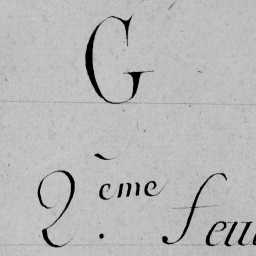 G
2.ème feu